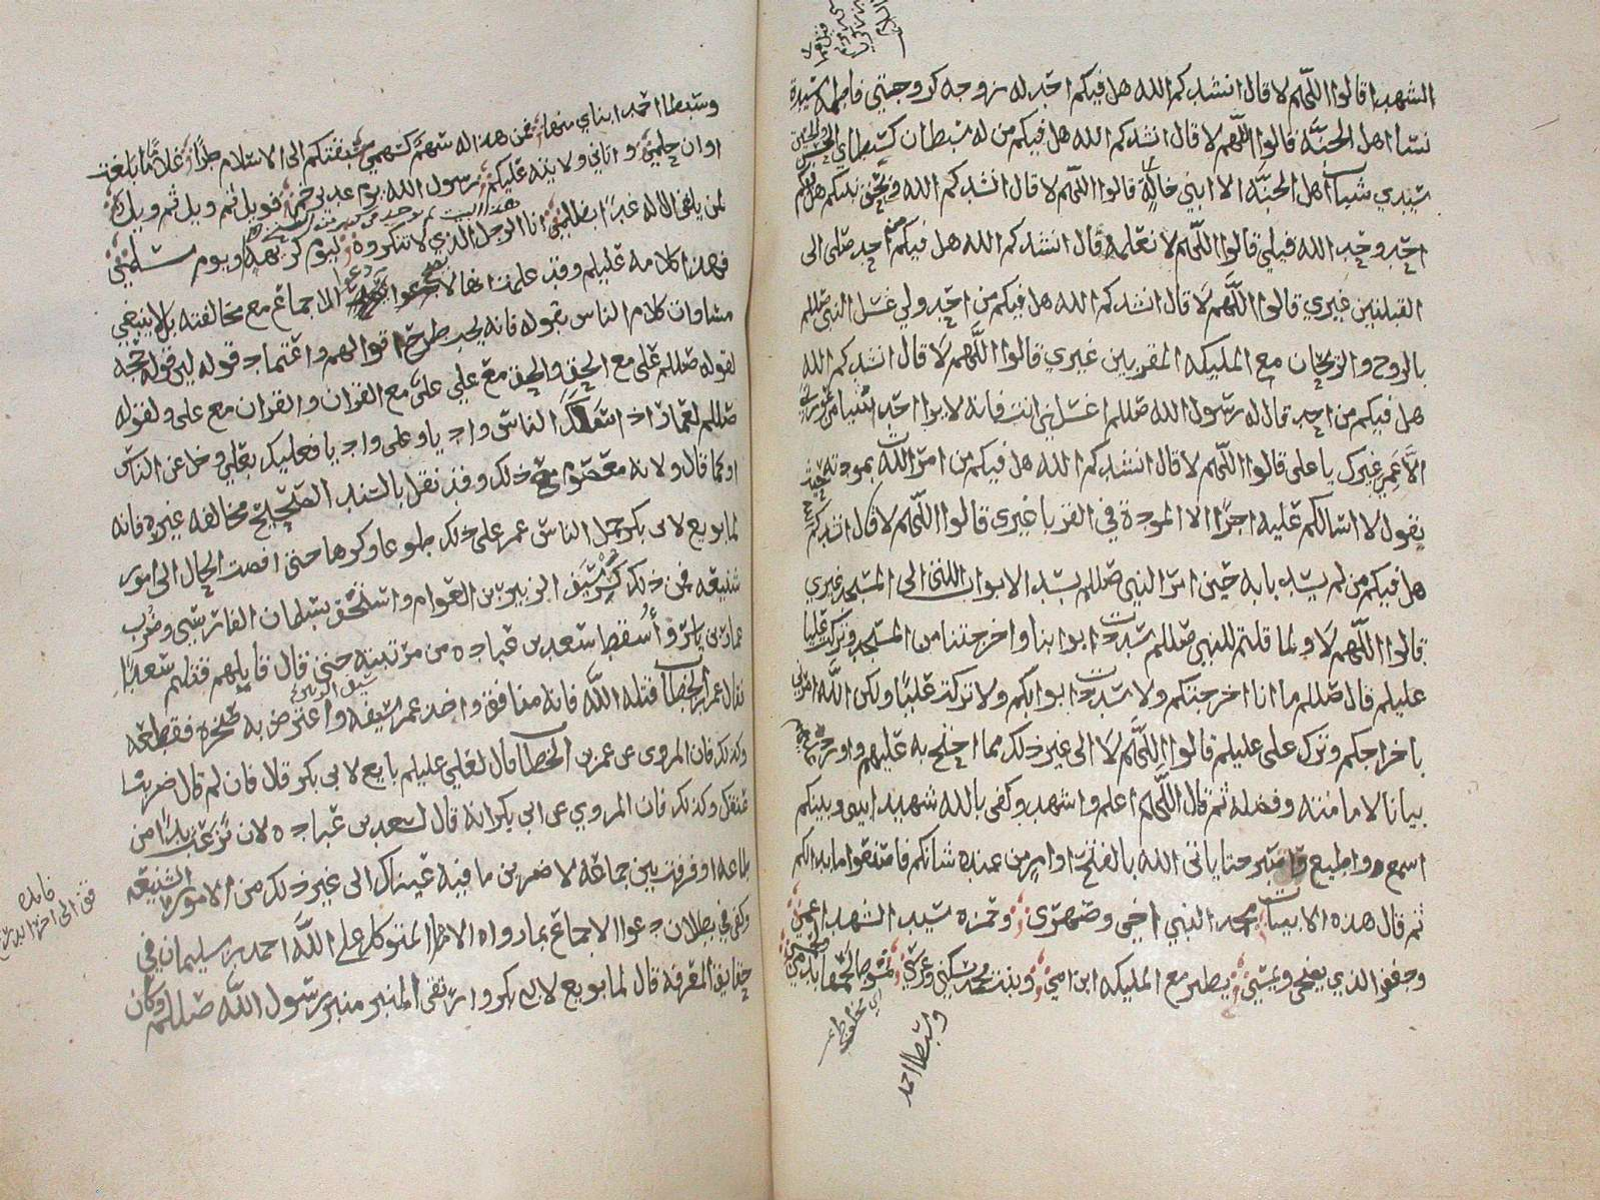 الشهدا قالوا اللهم لا قال انشدكم الله هل فيكم احد له زوجه كزوجتي فاطمه سيدة
نسا اهل الجنه قالوا اللهم لا قال انشدكم الله هل فيكم من له سبطان كسبطاي الحسن والحسين
سيدي شباب اهل الجنه الا ابني خاله قالوا اللهم لا قال انشدكم الله وبحق نبيكم هل منكم
احد وحد الله قبلي قالوا اللهم لا نعلمه قال انشدكم الله هل فيكم من احد صلى الى
القبلتين غيري قالوا اللهم لا قال انشدكم الله هل فيكم من احد ولي غسل النبي صللم
بالروح والريحان مع المليكه المقربين غيري قالوا اللهم لا قال انشدكم الله
هل فيكم من احد قال له رسول الله صللم اغسلني انت فانه لا يوا احد شيا من عورتي
الا عمي غيرك يا علي قالوا اللهم لا قال انشدكم الله هل فيكم من امر الله بمودته حيث
يقول لا اسالكم عليه اجرا الا المودة في القربا غيري قالوا اللهم لا قال انشدكم
هل فيكم من لم يسد بابه حين امر النبي صللم بسد الابواب اللتي الى المسجد غيري
قالوا اللهم لا ولما قلتم للنبي صللم سددت ابوابنا واخرجتنا من المسجد وتركت عليا
عليلم قال صللم ما انا اخرجتكم ولا سددت ابوابكم ولا تركت عليا ولكن الله امرني
باخراجكم وترك علي عليلم قالوا اللهم لا الى غير ذلك مما احتج به عليهم واورده
بيانا لامامته وفضله ثم قال اللهم اعلم واشهد وكفى بالله شهيدا بيني وبينكم
اسمع واطيع واصبر حتا ياتي الله بالفتح او امر من عنده شانكم فاصنعوا ما بدا لكم
ثم قال هذه الابيات محمد النبي اخي وصهري وحمزة سيد الشهدا عمي
وجعفر الذي يضحي ويمسي يطير مع المليكه ابن امي وبنت محمد سكني وعرسي منوط لحمها بدمي
وسبطا احمد
وسبطا احمد ابناي منها فمن هذا له سهم كسهمي سبقتكم الى الاسلام طرا غلاما ما بلغت
اوان حلمي واتاني ولايته عليكم رسول الله يوم غدير خم فويل ثم ويل ثم ويل
لمن يلقى الاله غدا بظلمي انا الرجل الذي لا تنكروه ليوم كريهة او يوم سلم
فهذا كلامه عليلم وقد علمت انها لا دعوا الاجماع مع مخالفته بل لا ينبغي
مساوات كلام الناس بقوله فانه يجب طرح اقوالهم واعتماد قوله لان قوله حجه
لقوله صللم علي مع الحق والحق مع علي علي مع القران والقران مع علي ولقوله
صللم لعمار اذا سلك الناس واديا وعلي واديا فعليك بعلي وخل عن الناس
او كما قال ولانه معصوم مع ذلك وقد نقل بالسند الصحيح مخالفه غيره فانه
لما بويع لابي بكر حمل الناس عمر على ذلك طوعا وكرها حتى افضت الحال الى امور
شنيعه فمن ذلك كسر سيف الزبير بن العوام واستخف بسلمان الفارسي وضرب
عمار بن ياسر واسقط سعد بن عباده من مرتبته حتى قال قايلهم قتلتم سعدا
فقال عمر بن الخطاب قتله الله فانه منافق واخذ عمر سيفه واعترض به صخره فقطعه
سيف الزبير
وكذلك فان المروى عن عمر بن الخطاب قال لعلي عليلم بايع لابي بكر قال فان لم قال ضربنا
عنقك وكذلك فان المروي عن ابي بكر انه قال لسعد بن عباده لان نزعت يدا من
طاعه او فرقت بين جماعة لاضربن ما فيه عيناك الى غير ذلك من الامور الشنيعه
وكفى في بطلان دعوا الاجماع بما رواه الامام المتوكل على الله احمد بن سليمان في
حقايق المعرفة قال لما بويع لابي بكر وارتقى المنبر منبر رسول الله صللم وكان